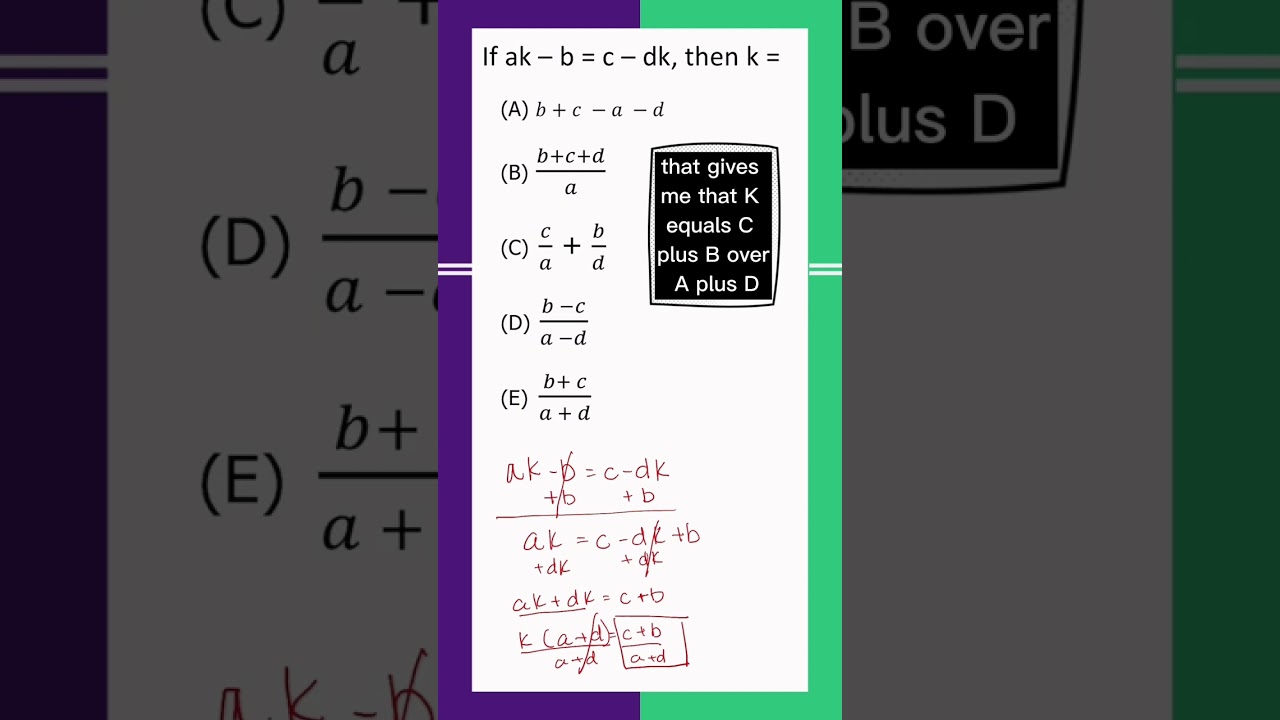 If ak – b = c – dk, then k =
(A) b + c – a – d
(B) b+c+d / a
(C) c/a + b/d
(D) b –c / a –d
(E) b+ c / a + d
that gives
me that K
equals C
plus B over
A plus D
ak - b = c - dk
+b +b
ak = c - dk + b
+dk + dk
ak + dk = c + b
k (a+d) = c+b
a+d a+d
(C) +
a
(D) b –
a –
(E) b+
a +
ak - b
B over
plus D